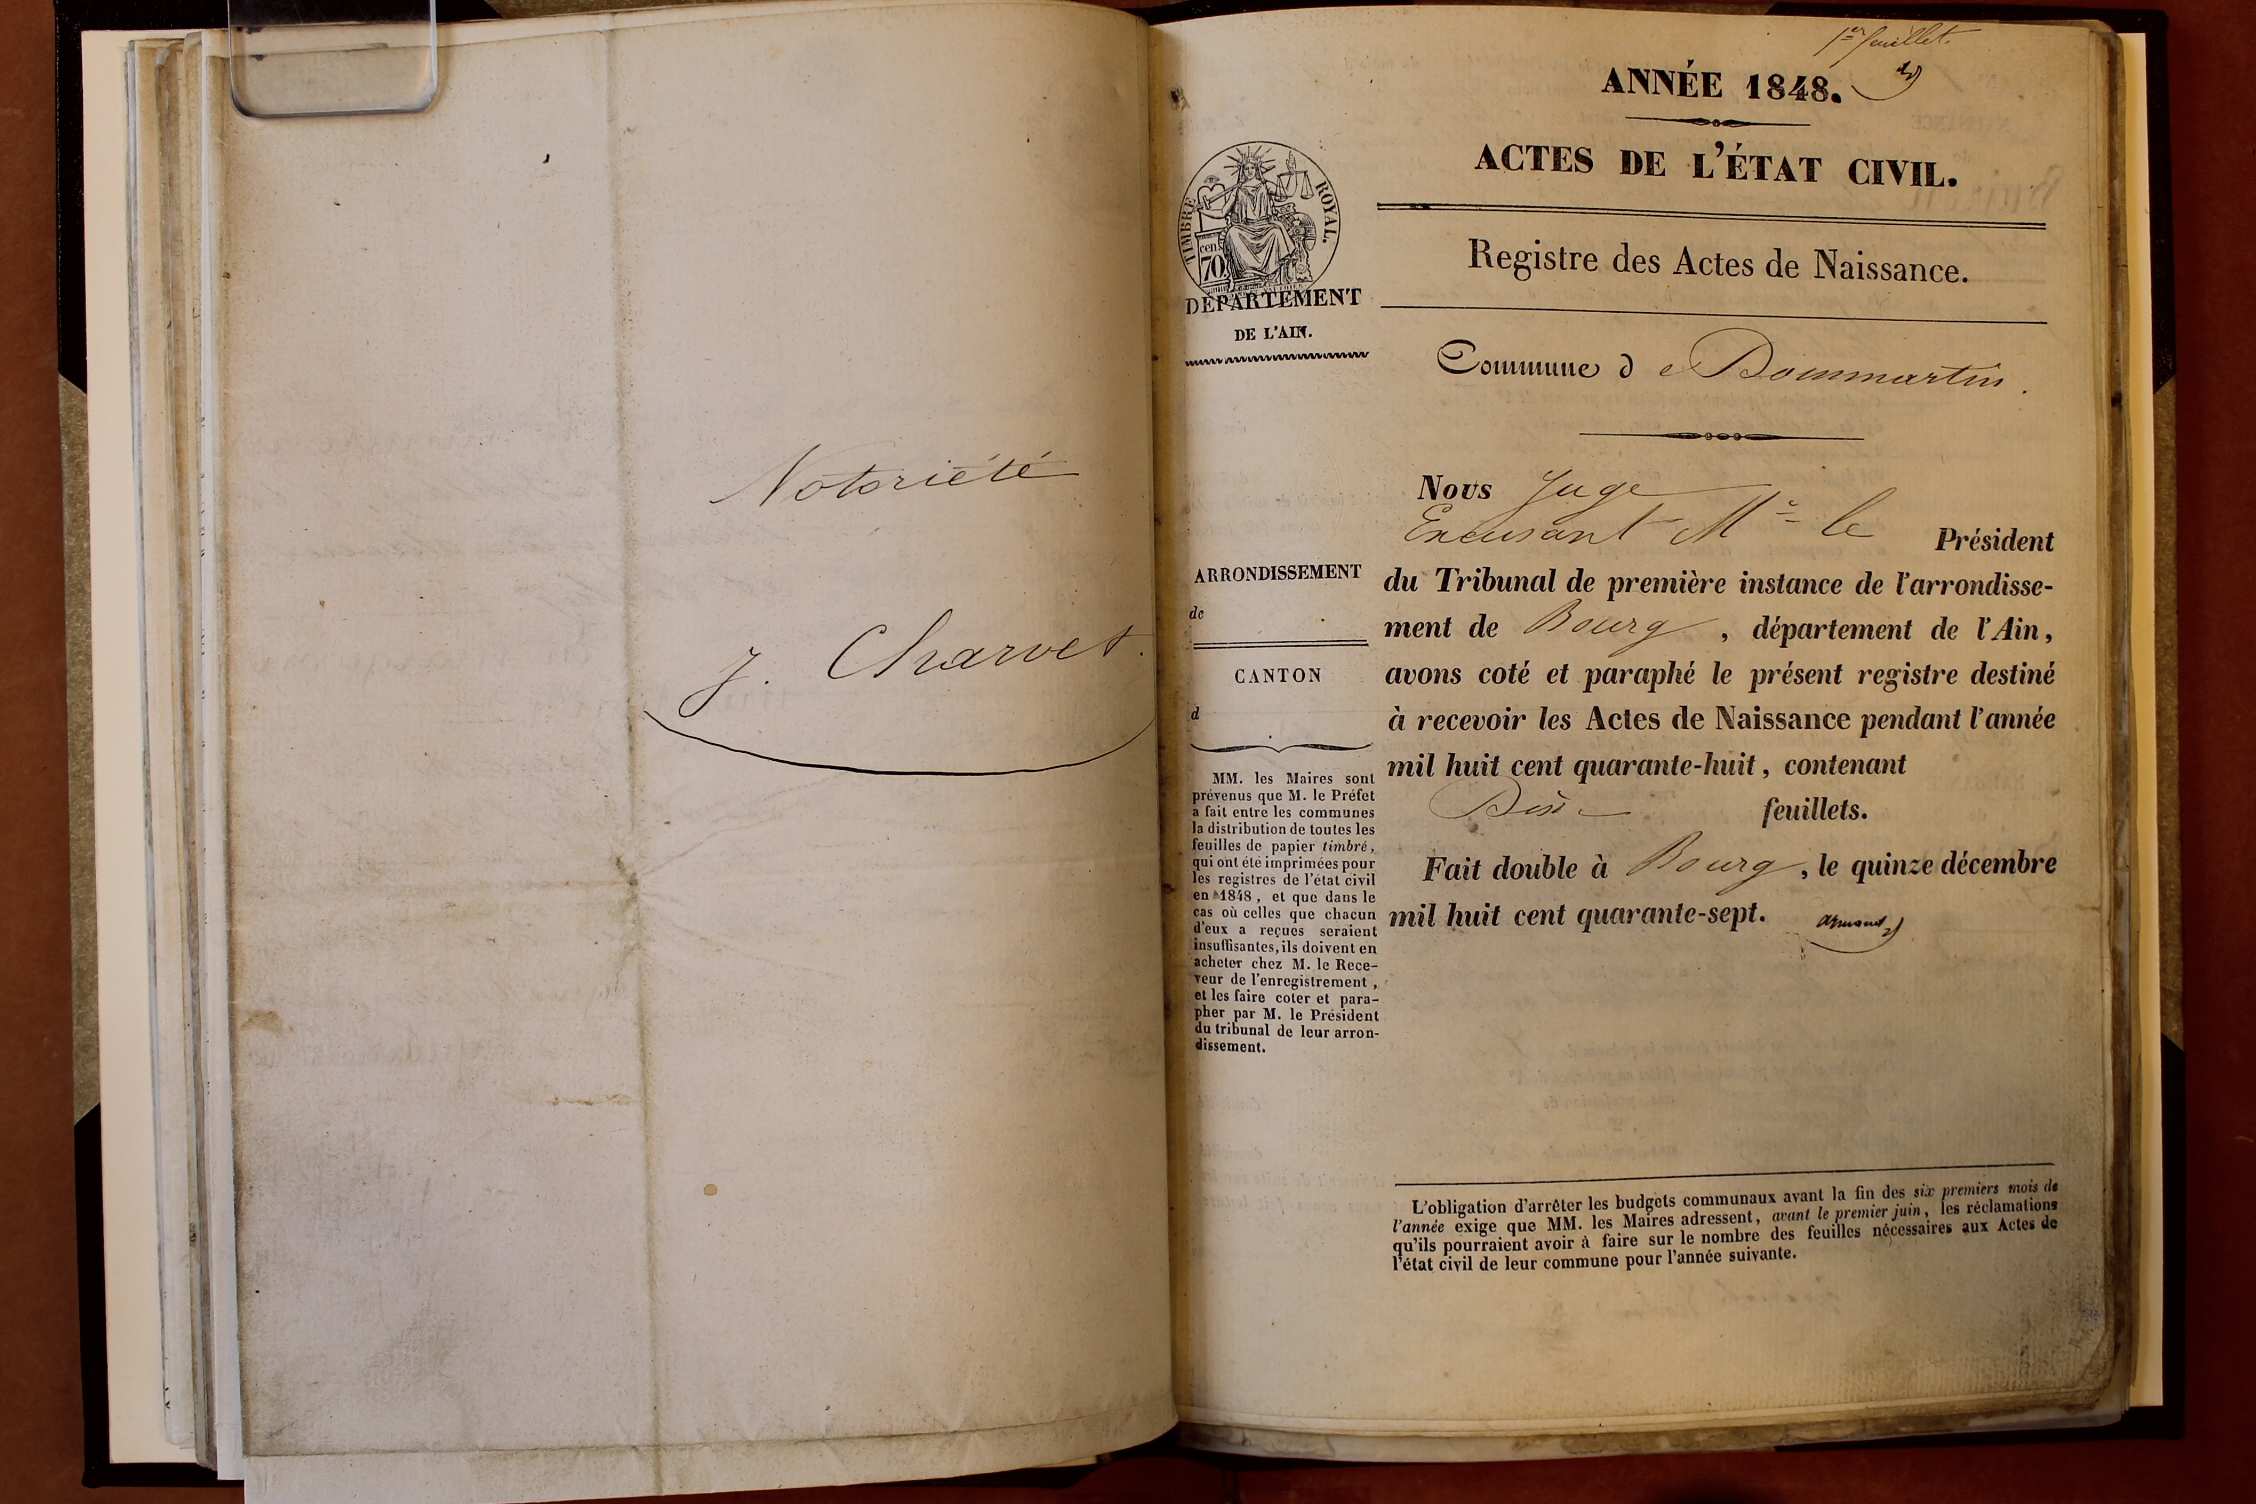 Notoriété
J. Charvet.
1er feuillet.
ANNÉE 1848.
ACTES DE L'ÉTAT CIVIL.
TIMBRE ROYAL.
cen.
70
DÉPARTEMENT
DE L'AIN.
Registre des Actes de Naissance.
Commune de Dommartin.
ARRONDISSEMENT
de
CANTON
d
MM. les Maires sont
prévenus que M. le Préfet
a fait entre les communes
la distribution de toutes les
feuilles de papier timbré,
qui ont été imprimées pour
les registres de l'état civil
en 1848, et que dans le
cas où celles que chacun
d'eux a reçues seraient
insuffisantes, ils doivent en
acheter chez M. le Rece-
veur de l'enregistrement,
et les faire coter et para-
pher par M. le Président
du tribunal de leur arron-
dissement.
Nous Juge
Excusant Mr le Président
du Tribunal de première instance de l'arrondisse-
ment de Bourg, département de l'Ain,
avons coté et paraphé le présent registre destiné
à recevoir les Actes de Naissance pendant l'année
mil huit cent quarante-huit, contenant
feuillets.
Fait double à Bourg, le quinze décembre
mil huit cent quarante-sept. armand
L'obligation d'arrêter les budgets communaux avant la fin des six premiers mois de
l'année exige que MM. les Maires adressent, avant le premier juin, les réclamations
qu'ils pourraient avoir à faire sur le nombre des feuilles nécessaires aux Actes de
l'état civil de leur commune pour l'année suivante.